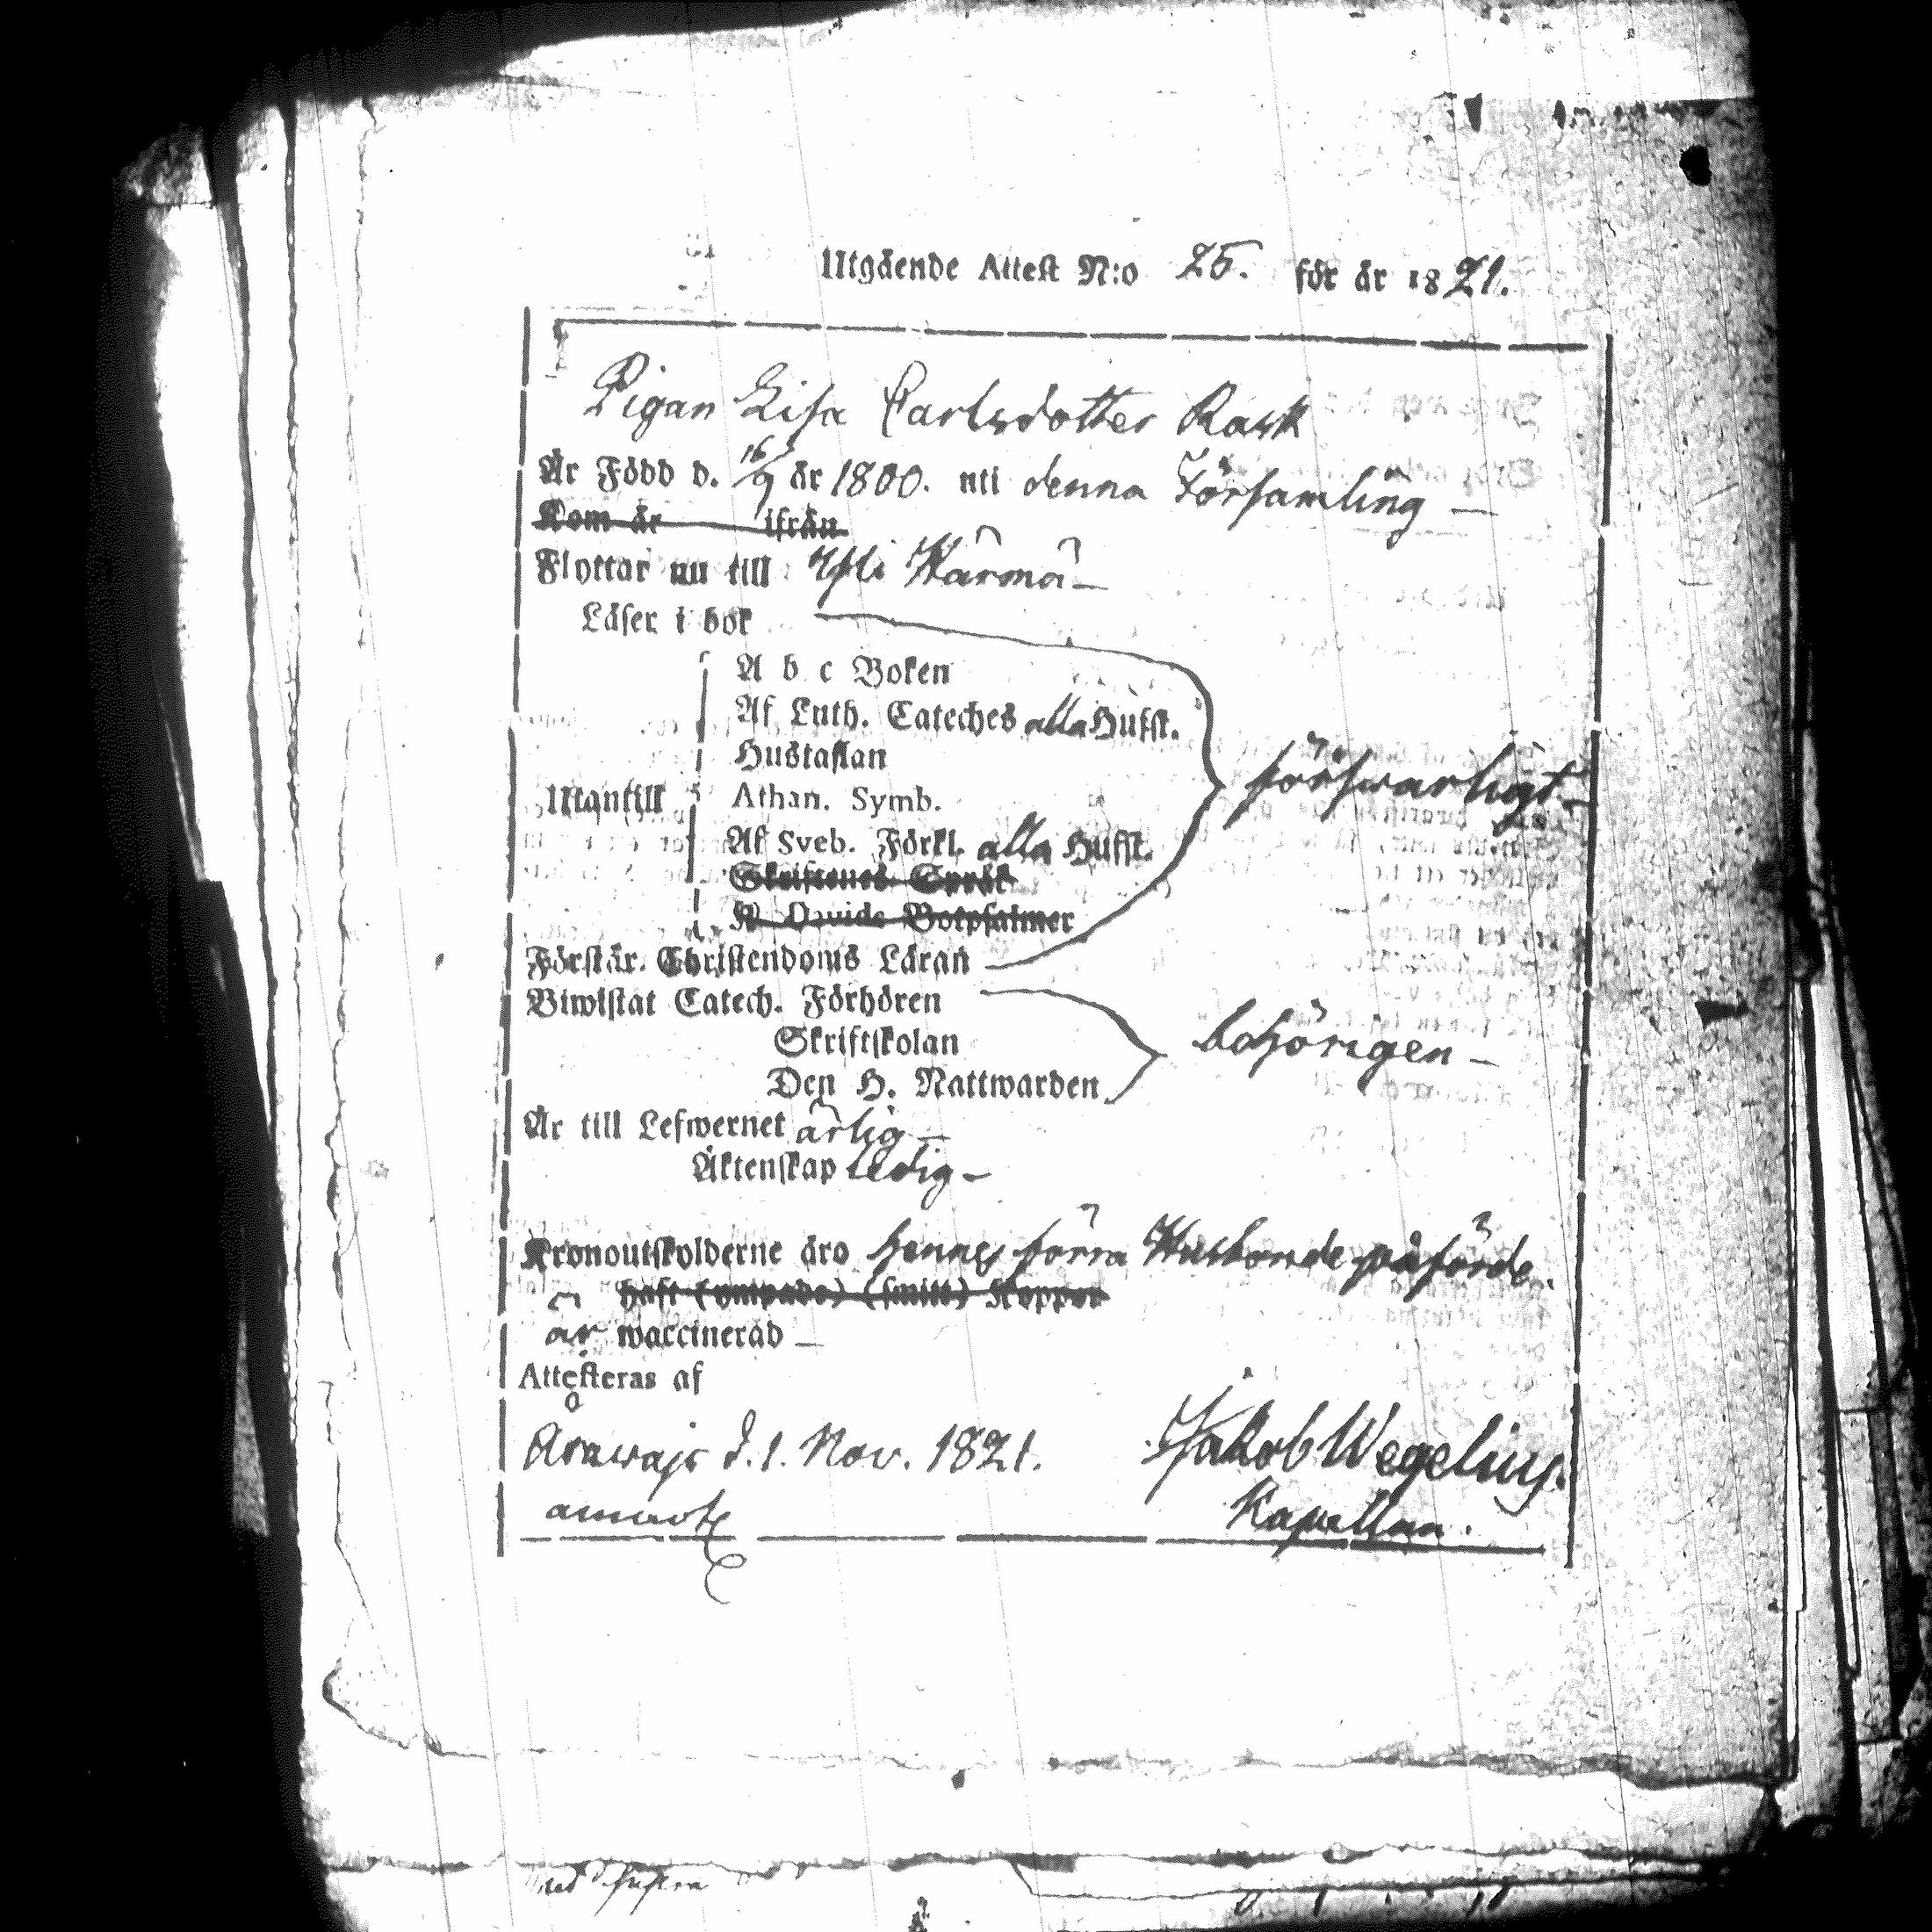 Utgående Attest N:o 25. för år 1821.
Pigan Lisa Carlsdotter Rask
Är Född d. 16/9 år 1800. uti denna Församling —
Kom år ifrån
Flyttar nu till Yfli Kärmä —
Läser i bok
A b c Boken
Af Luth. Cateches alla Hufst.
Hustaflan
Utantill Athan. Symb. försvarligt —
Af Sveb. Förkl. alla Hufst.
Skriftenes Språk
K. Davids Botpsalmer
Förstår Christendoms Läran
Biwistat Catech. Förhören
Skriftskolan behörigen —
Den H. Nattwarden
Är till Lefwernet ärlig —
Äktenskap ledig —
Kronoutskylderne äro hennes förra Husbonde påförde.
haft (ympade) (smitt) Koppor
är waccinerad —
Attesteras af
d. 1. Nov. 1821. Jakob Wegelius.
Kapellan.